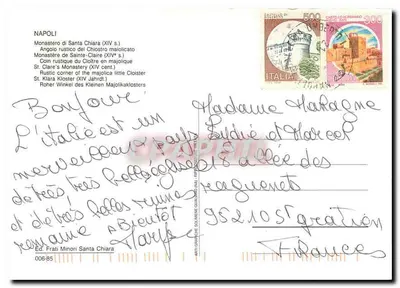 NAPOLI
Monastero di Santa Chiara (XIV s.)
Angolo rustico del Chiostro maiolicato
Monastère de Sainte-Claire (XIVe s.)
Coin rustique du Cloître en majolique
St. Claire's Monastery (XIV cent.)
Rustic corner of the majolica little Cloister
St. Klara Kloster (XIV Jahrdt.)
Roher Winkel des Kleinen Majolikaklosters
500
ITALIA
Bonjour
L'italie est un
merveilleux pays
de très, très belles
et de très belles ruines
romaine A Bientôt
Madame
Lydie et Marcel
allée des
95210 St gratien
France
Ed. Frati Minori Santa Chiara
008-85